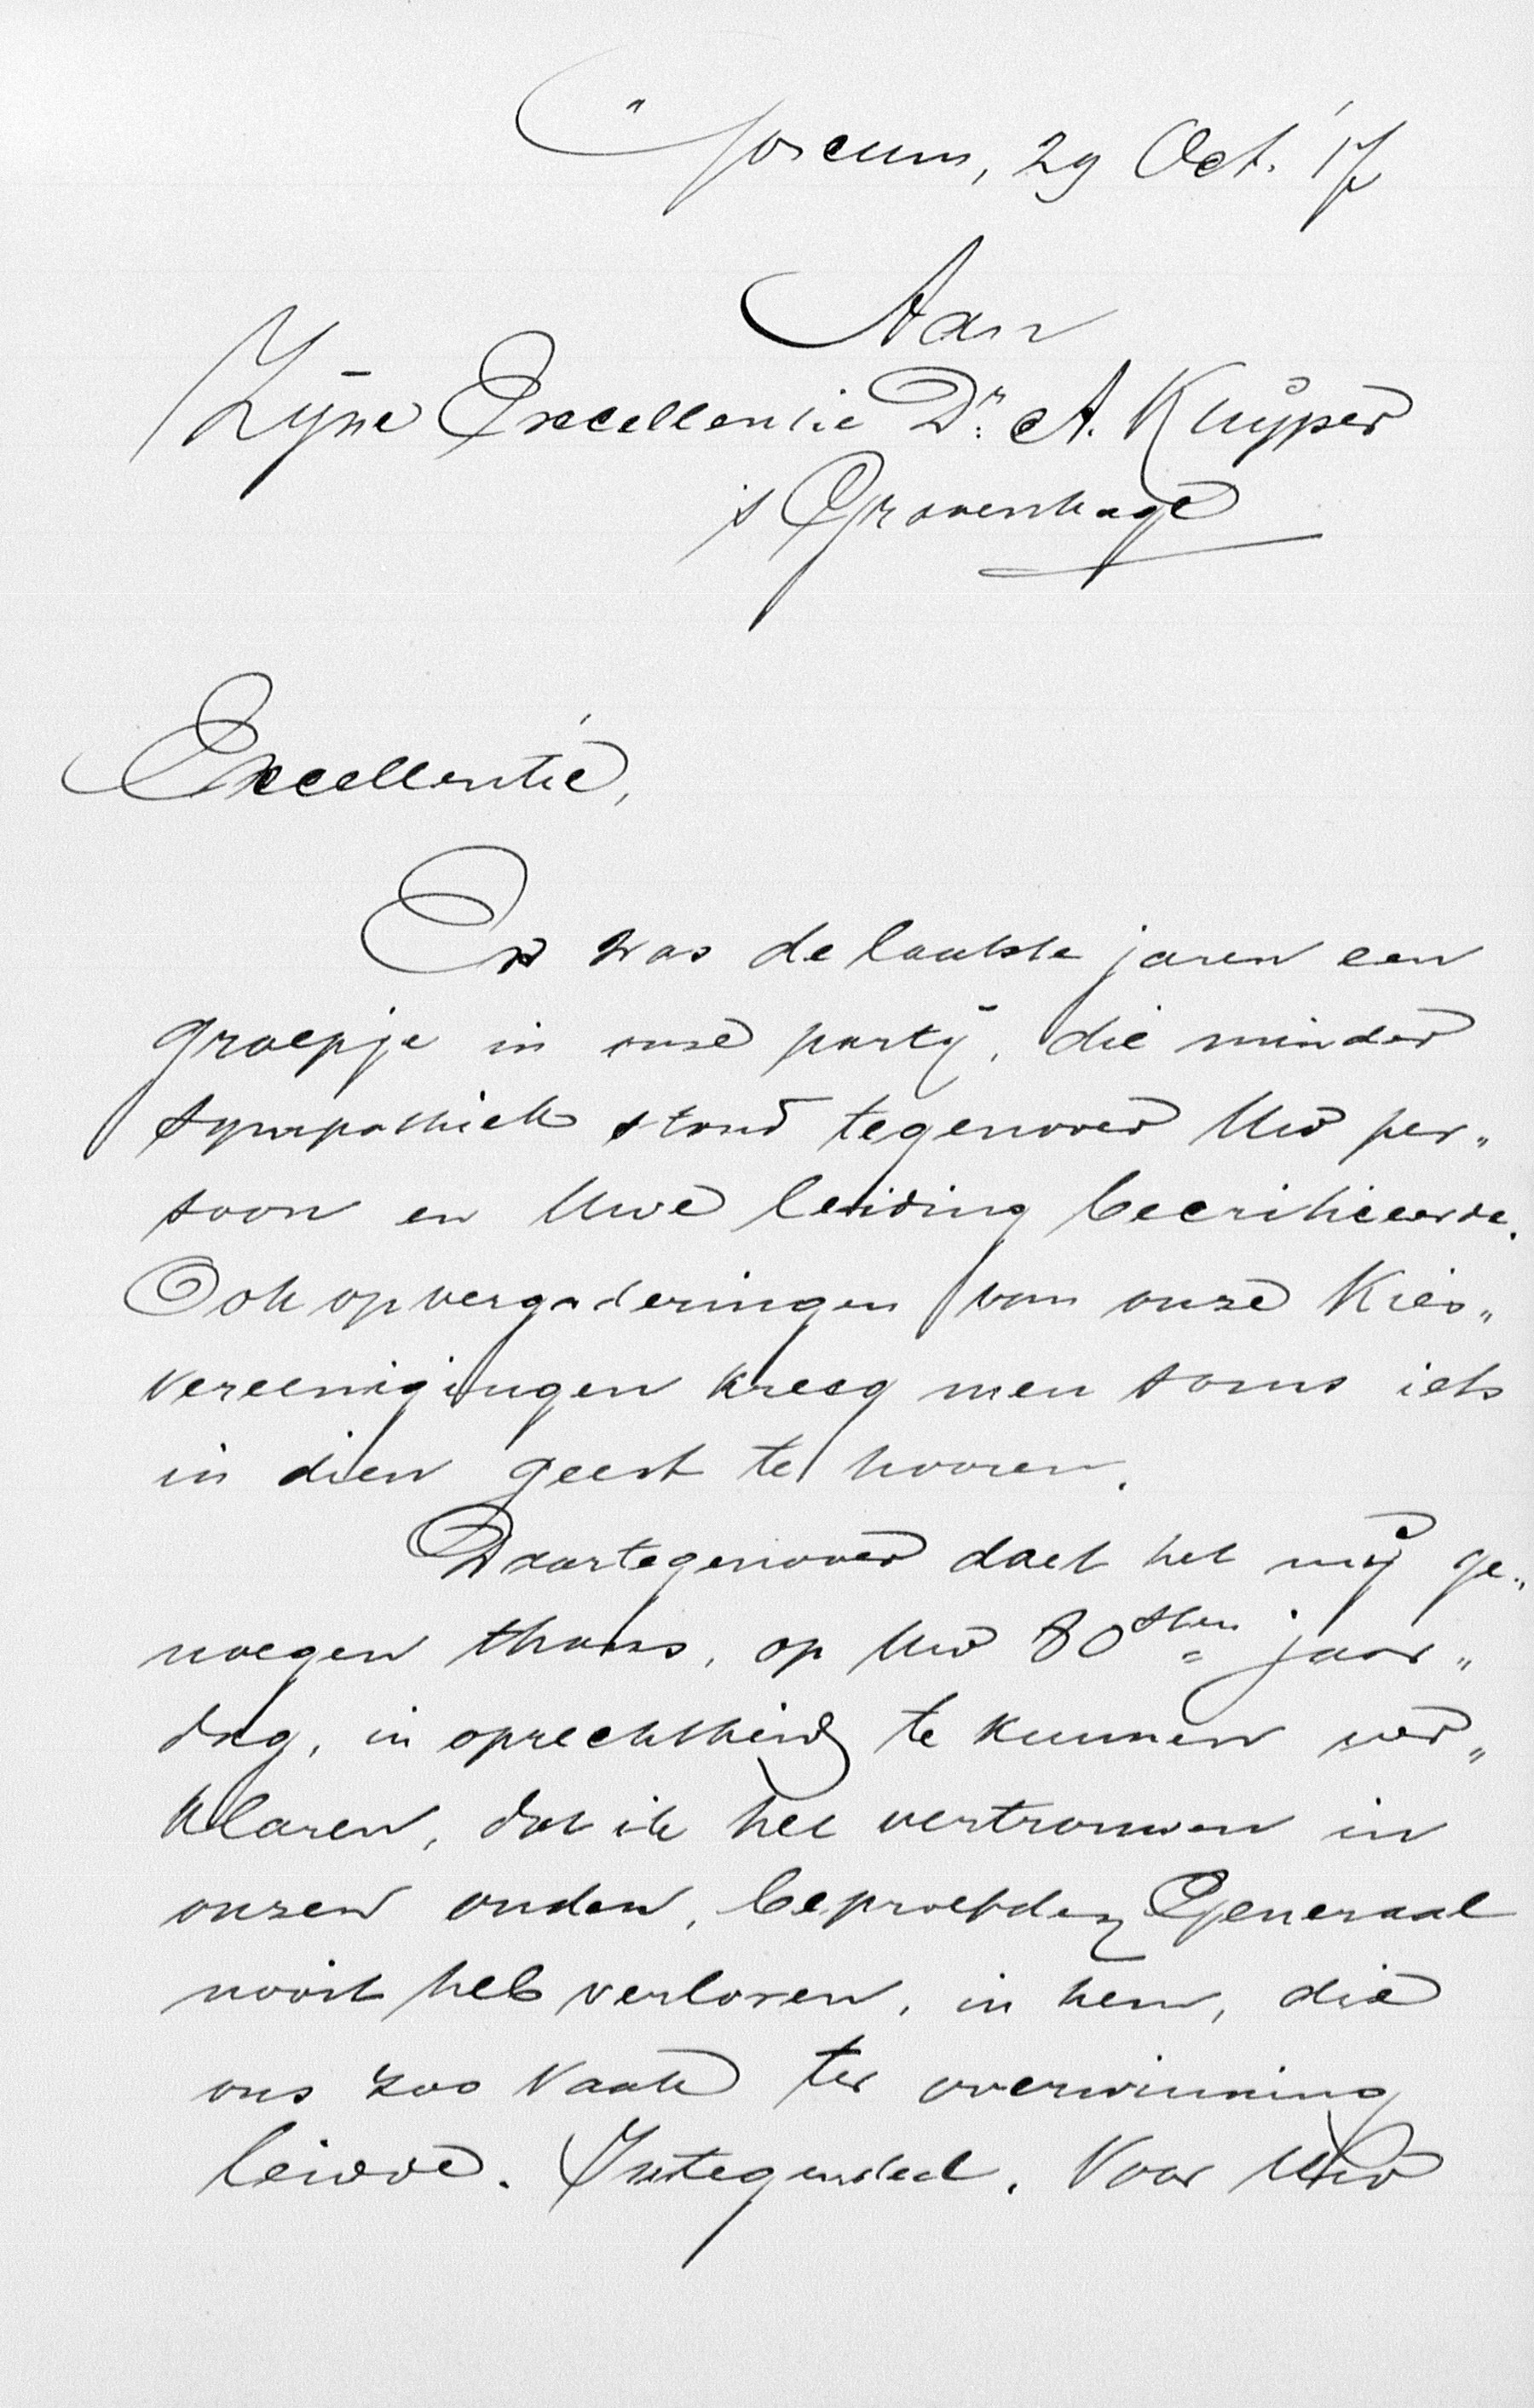 Gorcum, 29 Oct. '17
Aan
Zijne Excellentie Dr. A. Kuijper
's Gravenhage
Excellentie,
Er was de laatste jaren een
groepje in onze partij, die minder
sympathiek stond tegenover Uw per„
soon en Uwe leiding becritiseerde.
Ook op vergaderingen van onze Kies„
vereenigingen kreeg men soms iets
in dien geest te hooren.
Daartegenover doet het mij ge„
noegen thans, op Uw 80sten jaar„
dag, in oprechtheid te kunnen ver„
klaren, dat ik het vertrouwen in
onzen ouden, beproefden Generaal
nooit heb verloren, in hem, die
ons zoo vaak ter overwinning
leidde. Integendeel. Voor Uw